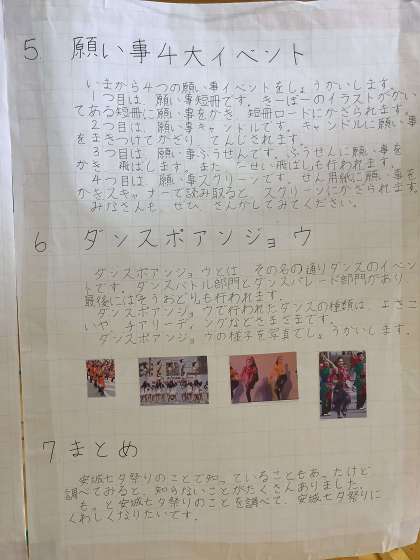 5. 願い事4大イベント
いまから4つの願い事イベントをしょうかいします。
1つ目は、願い事短冊です。きーぼーのイラストがかい
てある短冊に願い事をかき、短冊ロードにかざられます。
2つ目は、願い事キャンドルです。キャンドルに願い事
をまきつけてかざり、てんじされます。
3つ目は、願い事ふうせんです。ふうせんに願い事を
かき、飛ばします。また、一せい飛ばしも行われます。
4つ目は、願い事スクリーンです。せん用紙に願い事を
かきスキャナーで読み取ると、スクリーンにかざられます。
みなさんも、ぜひ、さんかしてみてください。
6 ダンスポアンジョウ
ダンスポアンジョウとは、その名の通りダンスのイベン
トです。ダンスバトル部門とダンスパレード部門があり、
最後にはそうおどりも行われます。
ダンスポアンジョウで行われたダンスの種類は、よさこ
いや、チアリーディングなどさまざまです。
ダンスポアンジョウの様子を写真でしょうかいします。
7 まとめ
安城七夕祭りのことで知っていることもあったけど
調べてみると、知らないことがたくさんありました。
もっと安城七夕祭りのことを調べて、安城七夕祭りに
くわしくなりたいです。